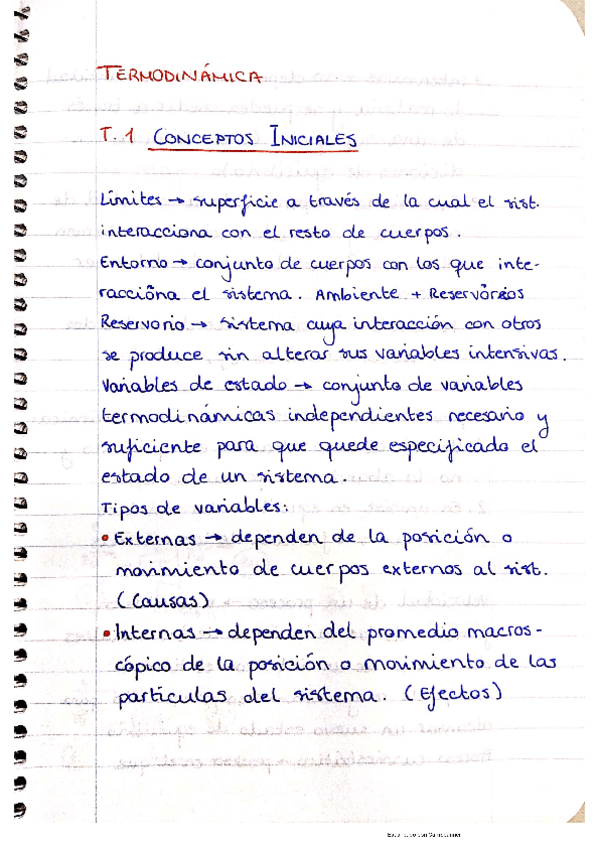 TERMODINÁMICA
T.1 CONCEPTOS INICIALES
Límites → superficie a través de la cual el sist.
interacciona con el resto de cuerpos.
Entorno → conjunto de cuerpos con los que inte-
racciona el sistema. Ambiente + Reservorios
Reservorio → sistema cuya interacción con otros
se produce sin alterar sus variables intensivas.
Variables de estado → conjunto de variables
termodinámicas independientes necesario y
suficiente para que quede especificado el
estado de un sistema.
Tipos de variables:
• Externas → dependen de la posición o
movimiento de cuerpos externos al sist.
(Causas)
• Internas → dependen del promedio macros-
cópico de la posición o movimiento de las
partículas del sistema. (Efectos)